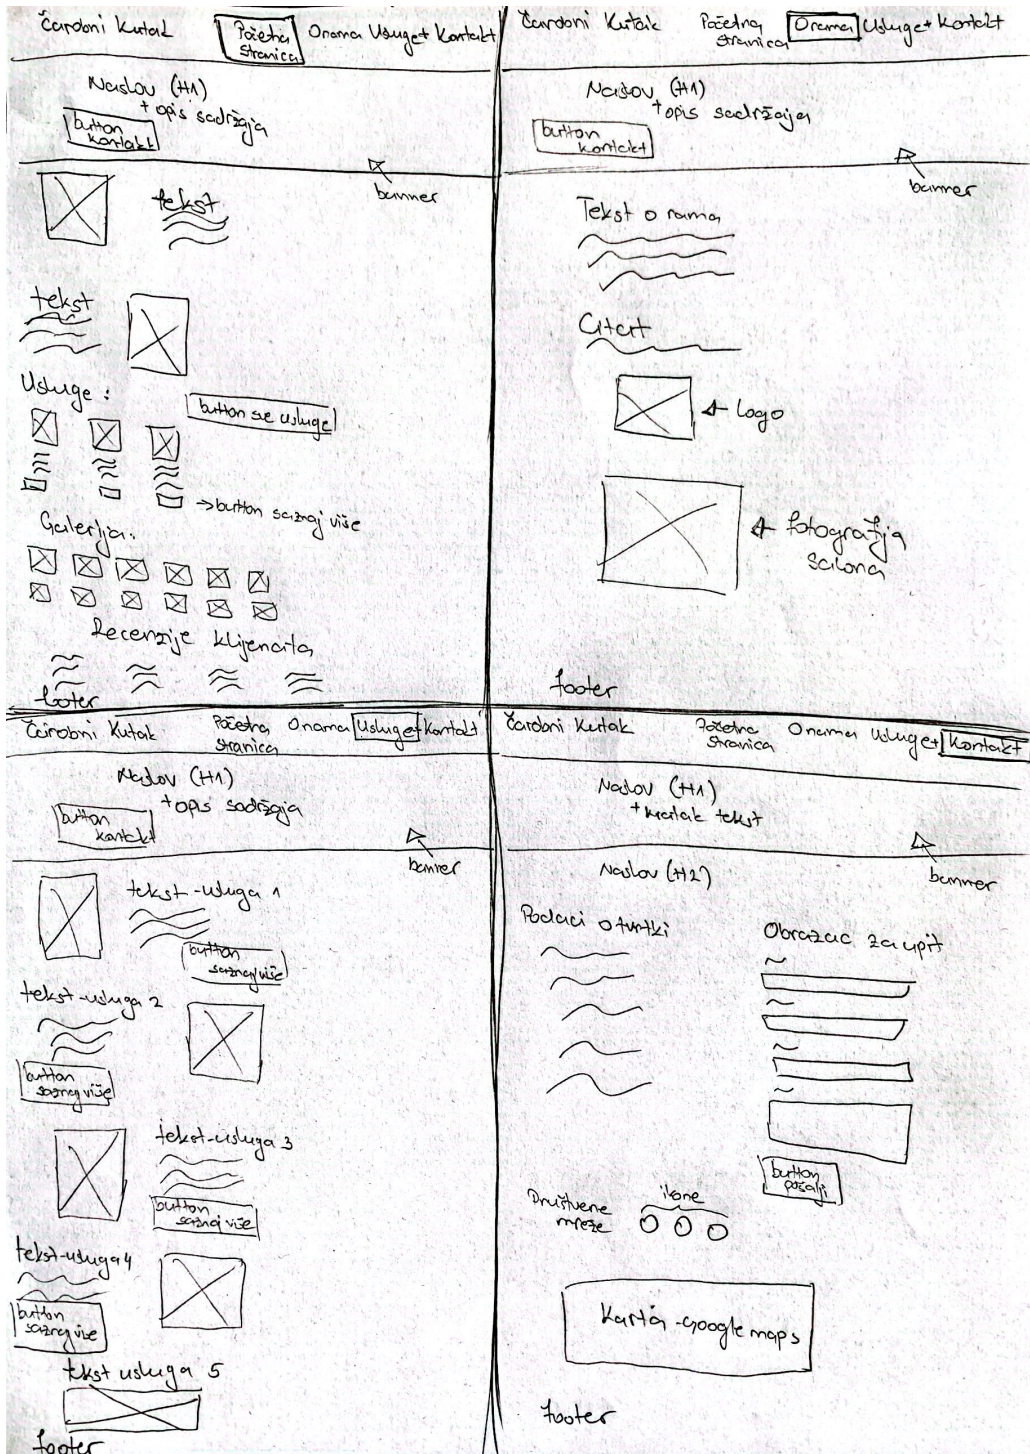 Čarobni Kutak
Početna
stranica
O nama
Usluge+
Kontakt
Naslov (H1)
+ opis sadržaja
button
kontakt
banner
tekst
tekst
Usluge:
button sve usluge
→ button saznaj više
Galerija:
Recenzije klijenata
footer
Čarobni Kutak
Početna
stranica
O nama
Usluge+
Kontakt
Naslov (H1)
+ opis sadržaja
button
kontakt
banner
Tekst o nama
Citat
Logo
fotografija
salona
footer
Čarobni Kutak
Početna
stranica
O nama
Usluge+
Kontakt
Naslov (H1)
+ opis sadržaja
button
kontakt
banner
tekst - usluga 1
button
saznaj više
tekst - usluga 2
button
saznaj više
tekst - usluga 3
button
saznaj više
tekst - usluga 4
button
saznaj više
tekst usluga 5
footer
Čarobni Kutak
Početna
stranica
O nama
Usluge+
Kontakt
Naslov (H1)
+ kratak tekst
banner
Naslov (H2)
Podaci o tvrtki
Obrazac za upit
button
pošalji
Društvene
mreže
ikone
Karta - Google maps
footer